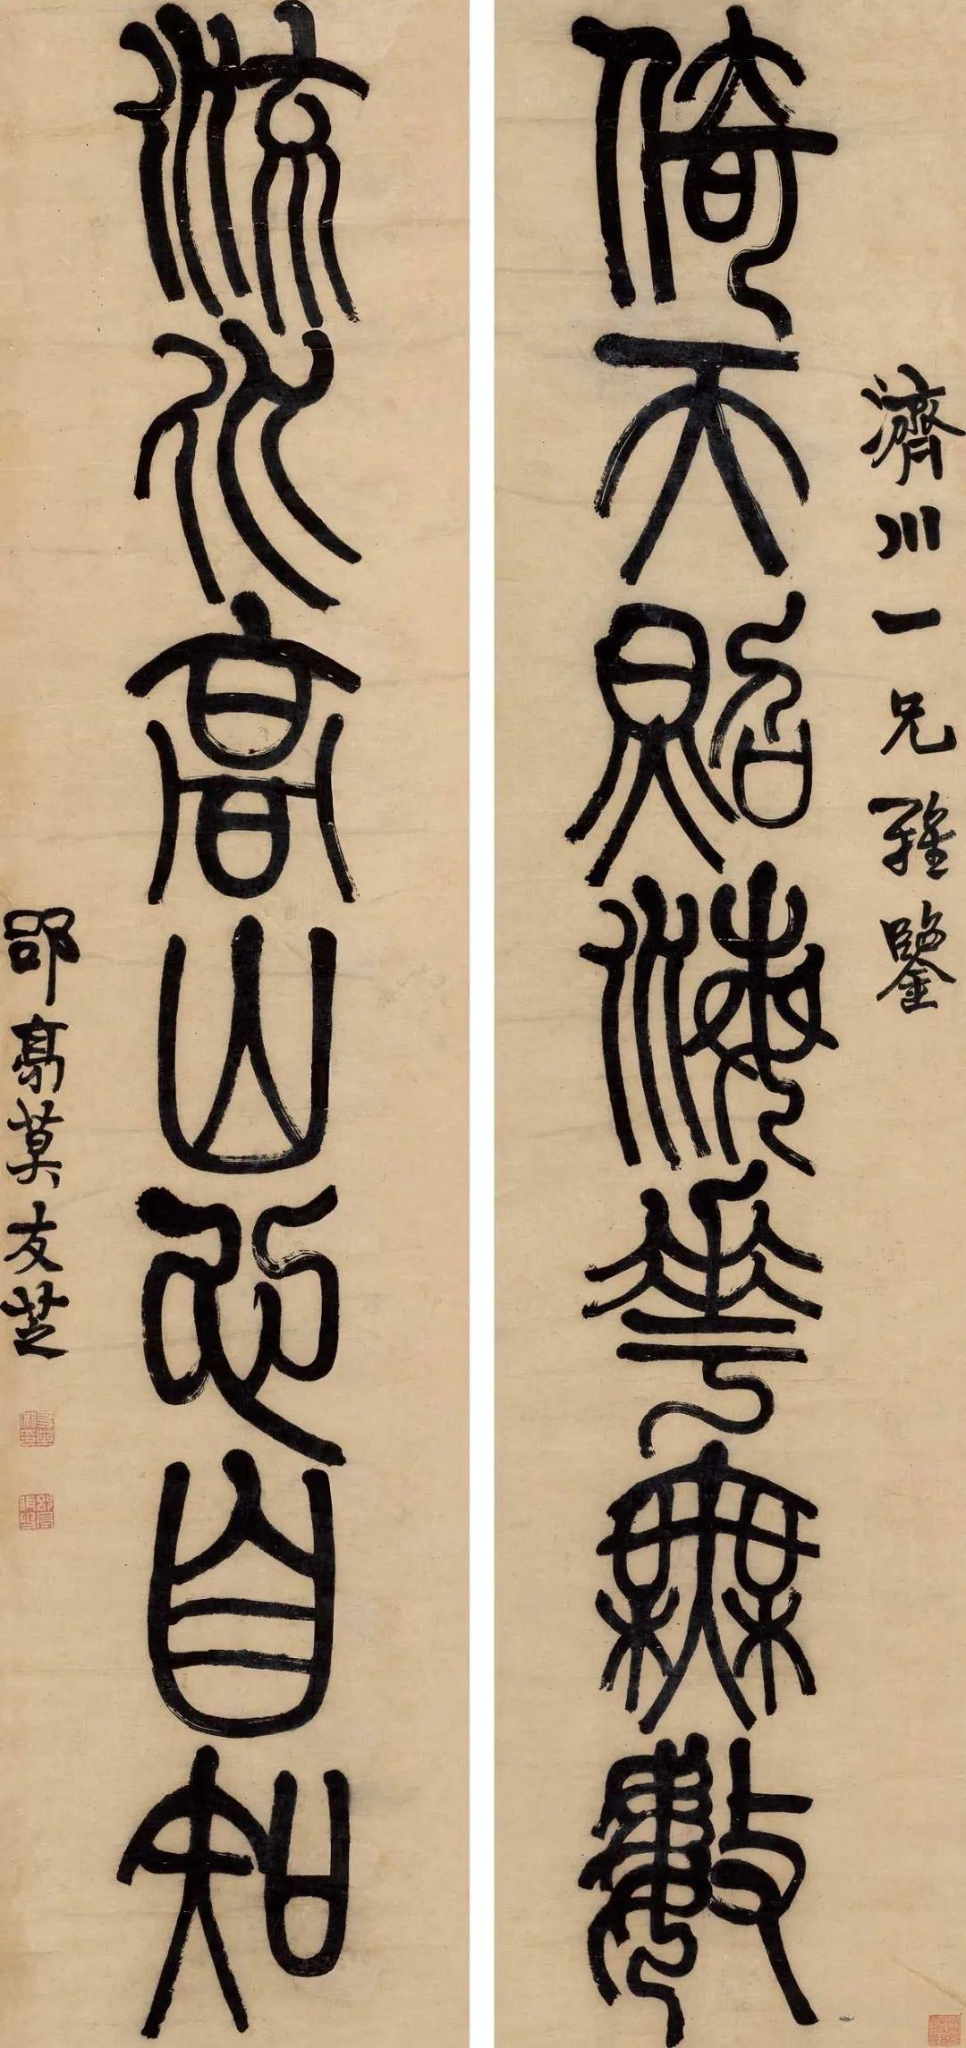 濟川一兄雅鑒
倚天照海華無數
流水高山心自知
郘亭莫友芝